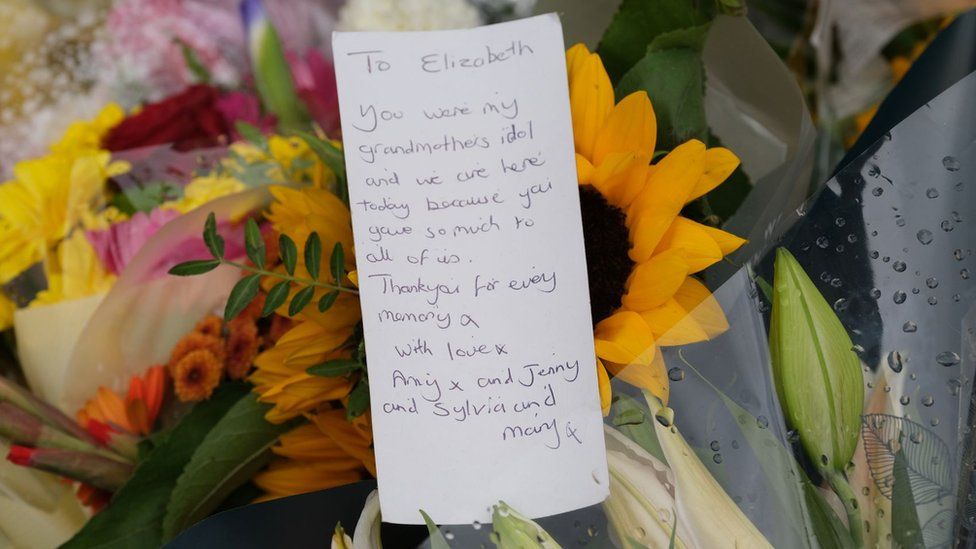 To Elizabeth
You were my
grandmothers idol
and we are here
today because you
gave so much to
all of us.
Thankyou for every
memory x
with love x
Amy x and Jenny
and Sylvia and
mary x